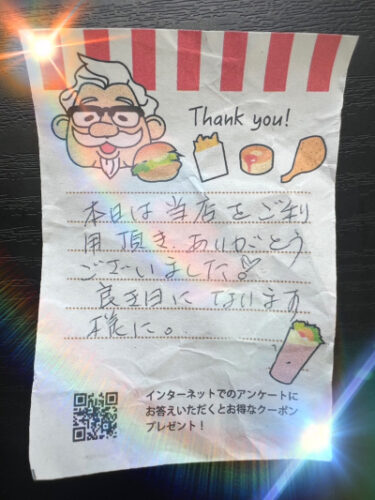 Thank you!
本日は当店をご利
用頂き、ありがとう
ございました♡
良き日になります
様に。
インターネットでのアンケートに
お答えいただくとお得なクーポン
プレゼント！